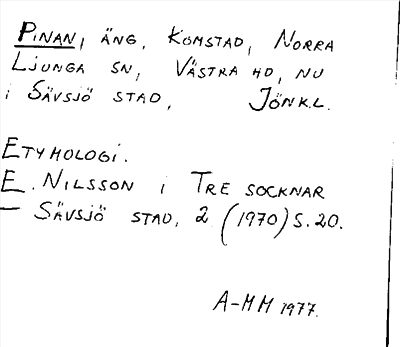 PINAN, ÄNG, KOMSTAD, NORRA
LJUNGA SN, VÄSTRA HD, NU
i SÄVSJÖ STAD, JÖNK.L.
ETYMOLOGI.
E. NILSSON i TRE SOCKNAR
– SÄVSJÖ STAD, 2 (1970) S. 20.
A-MM 1977.